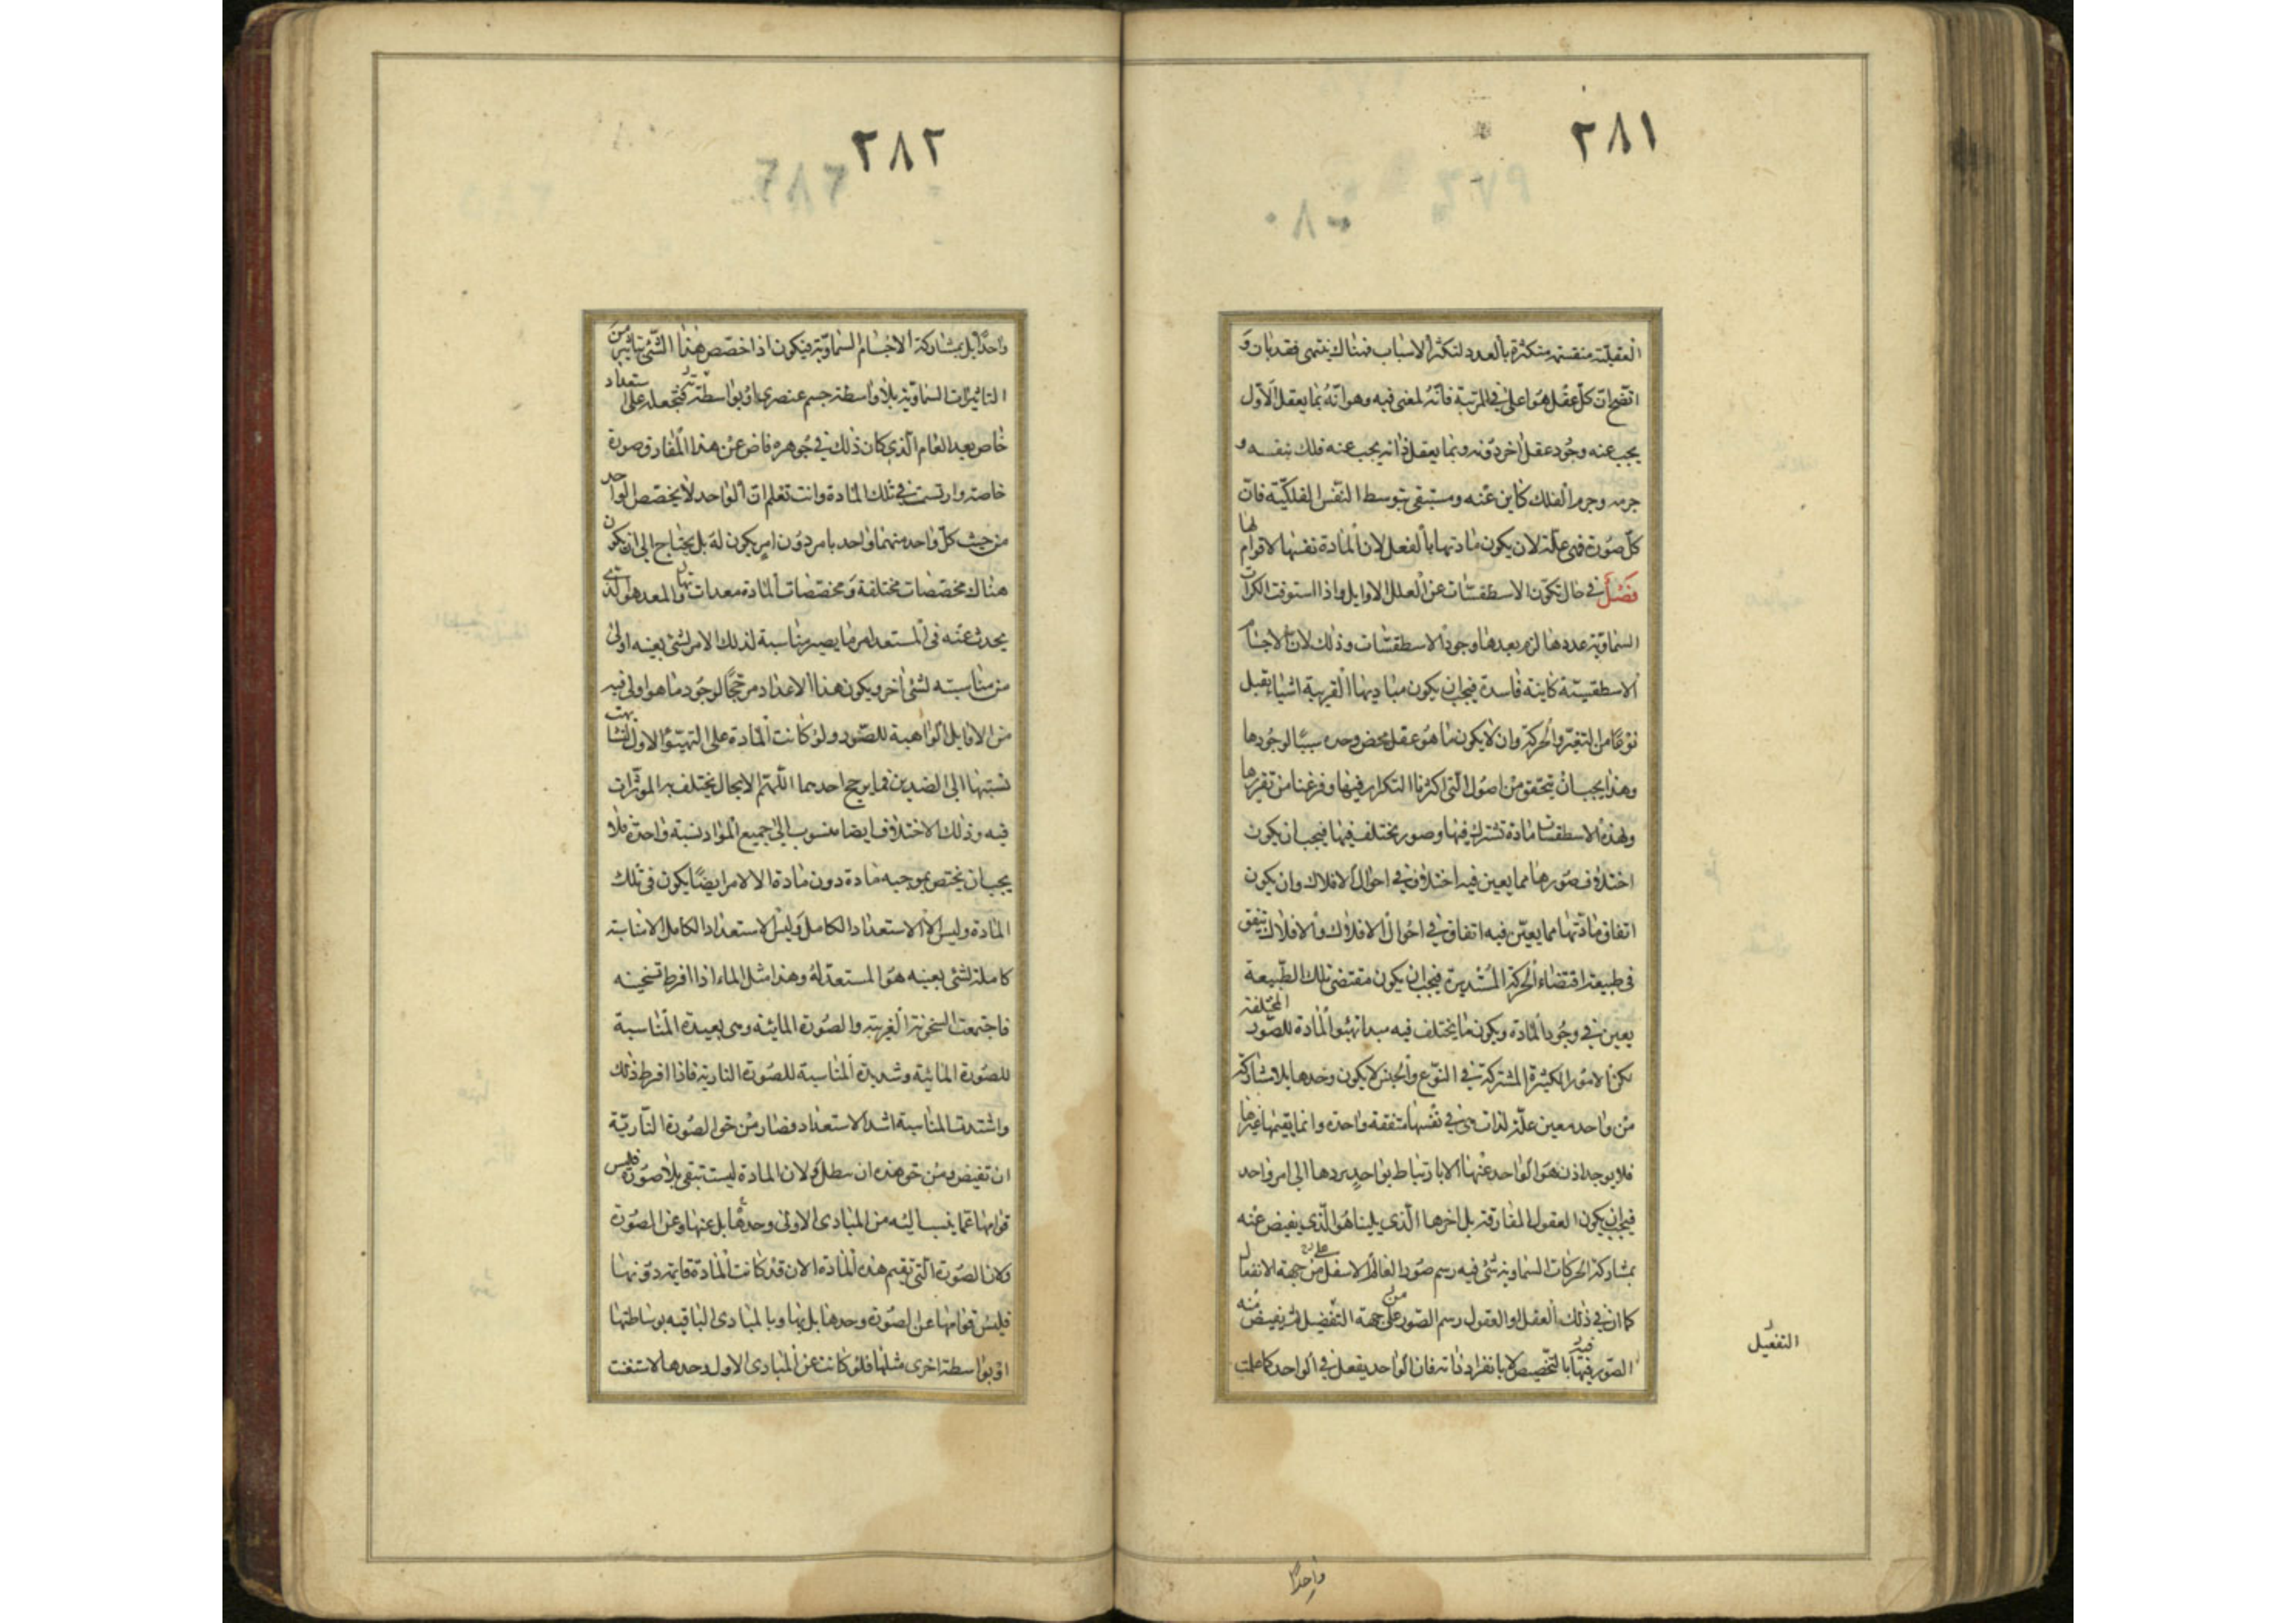 ٢٨١
العقلية منقسمة متكثرة بالعدد لتكثر الاسباب فهناك ينتهى فقد بان و
اتضح ان كل عقل هو اعلى في المرتبة فانه لمعنى فيه وهو انه بما يعقل الاول
يجب عنه وجود عقل اخر دونه وبما يعقل ذاته يجب عنه فلك بنفسه و
جرمه وجرم الفلك كاين عنه ومستبقى بتوسط النفس الفلكية فان
كل صورة فهى علة لان يكون مادتها بالفعل لان المادة نفسها لا قوام لها
فصل في حال تكون الاسطقسات عن العلل الاوايل واذا استوفت الكرات
السماوية عددها لزم بعدها وجود الاسطقسات وذلك لان الاجسام
الاسطقسية كاينة فاسدة فيجب ان يكون مباديها القريبة اشياء يقبل
نوعا من التغير والحركة وان لا يكون ما هو عقل محض وحده سببا لوجودها
وهذا يجب ان يتحقق من اصول التي اكثرنا التكرار فيها وفرغنا من تقريرها
ولهذه الاسطقسات مادة تشترك فيها وصور يختلف فيها فيجب ان يكون
اختلاف صورها مما يعين فيه اختلاف في احوال الافلاك وان يكون
اتفاق مادتها مما يعين فيه اتفاق في احوال الافلاك والافلاك يتفق
في طبيعة اقتضاء الحركة المستديرة فيجب ان يكون مقتضى تلك الطبيعة
يعين في وجود المادة ويكون ما يختلف فيه مبدا تهيؤ المادة للصور المختلفة
لكن الامور الكثيرة المشتركة في النوع والجنس لا يكون وحدها بلا مشاركة
من واحد معين علة لذات هي في نفسها متفقة واحدة وانما يقيمها غيرها
فلا يوجد اذن هو الواحد عنها الا بارتباط بواحد يردها الى امر واحد
فيجب ان يكون العقول المفارقة بل اخرها الذي يلينا هو الذي يفيض عنه
بمشاركة الحركات السماوية شئ فيه رسم صور العالم الاسفل على من جهة الانفعال
كما ان في ذلك العقل او العقول رسم الصور من على جهة التفضيل ثم يفيض منه
الصور فيها فيه بالتخصيص لا بانفراد ذاته فان الواحد يفعل في الواحد كما علمت
التفعيل
واحدا
٢٨٢
واحدا بل بمشاركة الاجسام السماوية فيكون اذا خصص هذا الشئ تاثير من
التاثيرات السماوية بلا واسطة جسم عنصري او بواسطة فتجعله على استعداد
خاص بعد العام الذي كان ذلك في جوهره فاض عن هذا المفارق صورة
خاصة وارتسمت في تلك المادة وانت تعلم ان الواحد لا يخصص الواحد
من حيث كل واحد منهما واحد بامر دون امر يكون له بل يحتاج الى ان يكون
هناك مخصصات مختلفة ومخصصات المادة معداتها والمعد هو الذي
يحدث عنه في المستعد امر ما يصير مناسبة لذلك الامر لشئ بعينه اولى
من مناسبته لشئ اخر ويكون هذا الاعداد مرجحا لوجود ما هو اولى فيه
من الاوايل الواهبة للصور ولو كانت المادة على التهيؤ الاول لتشابهت
نسبتها الى الضدين فما يرجح احدهما اللهم الا بحال يختلف به الموثرات
فيه وذلك الاختلاف ايضا منسوب الى جميع المواد نسبة واحدة فلا
يجب ان يختص بموجبه مادة دون مادة الا لامر ايضا يكون في تلك
المادة وليس الا الاستعداد الكامل وليس الاستعداد الكامل الا مناسبة
كاملة لشئ بعينه هو المستعد له وهذا مثل الماء اذا افرط تسخينه
فاجتمعت السخونة الغريبة والصورة المائية وهى بعيدة المناسبة
للصورة المائية وشديدة المناسبة للصورة النارية فاذا افرط ذلك
واشتدت المناسبة اشتد الاستعداد فصار من حق الصورة النارية
ان تفيض ومن حق هذه ان تبطل ولان المادة ليست تبقى بلا صورة فليس
قوامها عما ينسب اليه من المبادى الاولى وحدها بل عنها وعن الصورة
ولان الصورة التي تقيم هذه المادة الان قد كانت المادة قايمة دونها
فليس قوامها عن الصورة وحدها بل بها وبالمبادى الباقيه بوساطتها
او بواسطة اخرى مثلها فلو كانت عن المبادى الاول وحدها لاستغنت